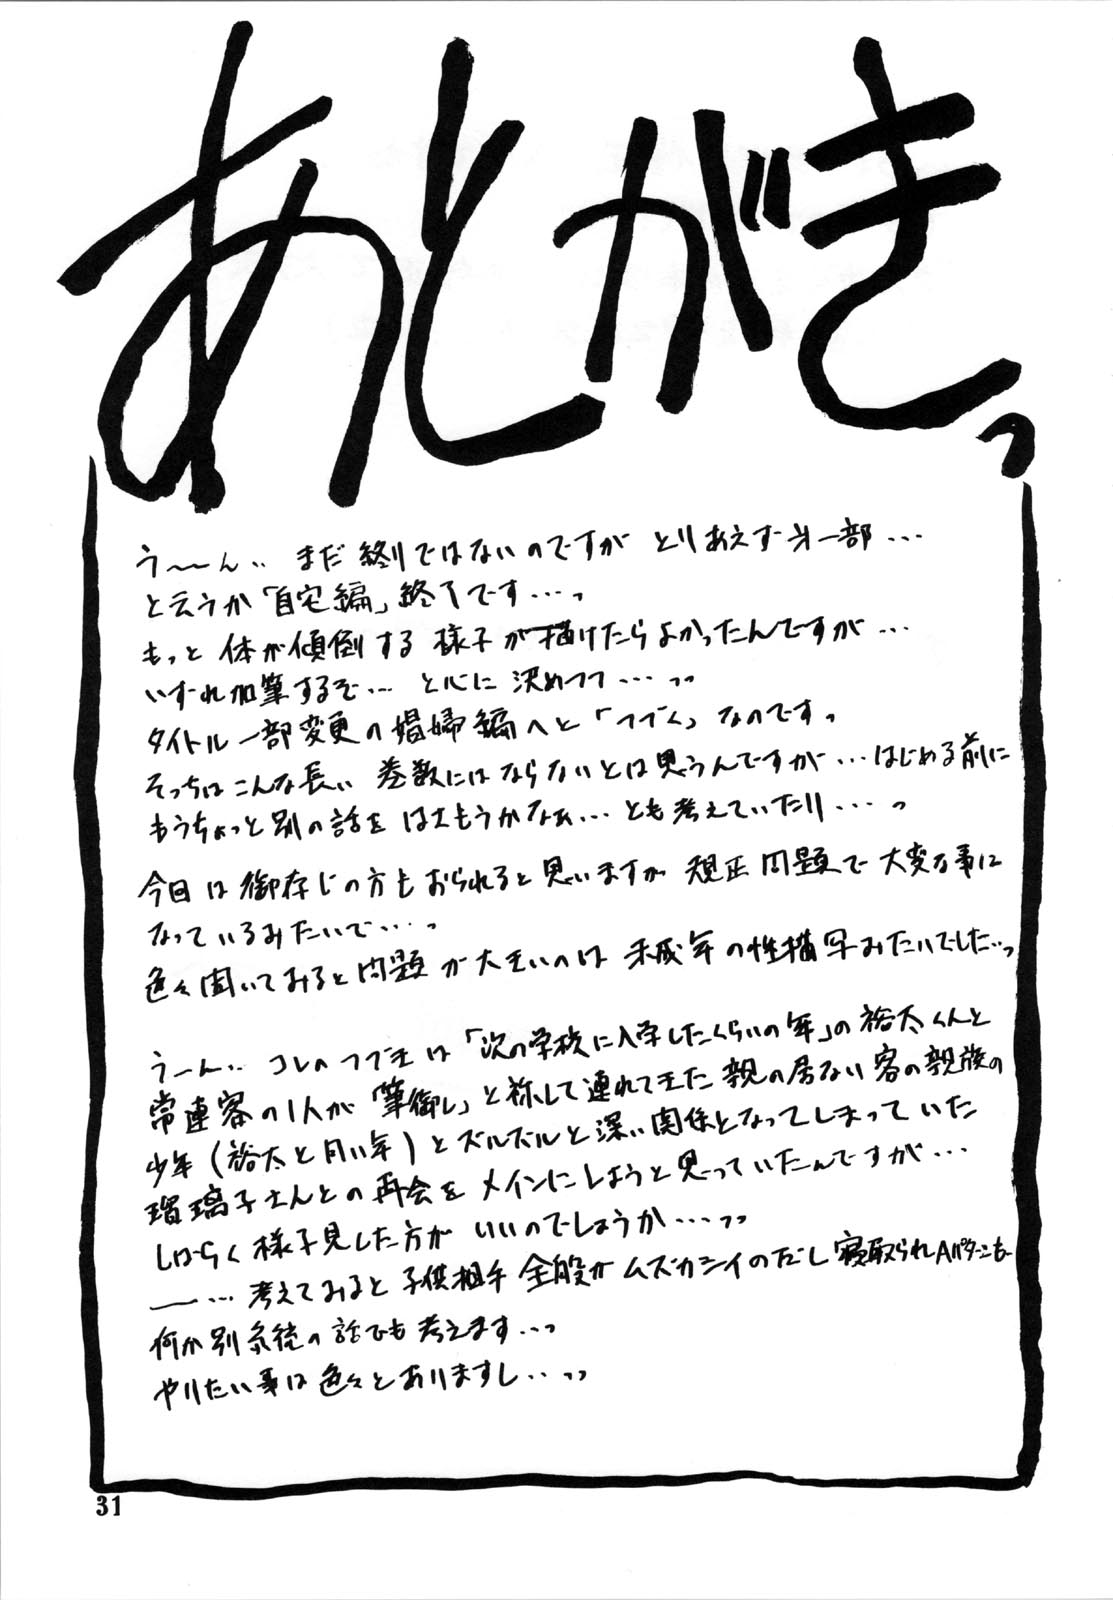 あとがきっ
う〜〜ん.. まだ終りではないのですが とりあえず㐧一部...
と云うか「自宅編」終了です...っ
もっと 体が傾倒する 様子が描けたらよかったんですが...
いずれ加筆するぞ... と心に 決めつつ...っっ
タイトル一部変更の娼婦編へと「つづく」なのです。
そっちはこんな長い 巻数にはならないとは思うんですが...はじめる前に
もうちょっと別の話を はさもうかなぁ... とも考えていたり...っ
今回は御存じの方もおられると思いますが 規正問題で大変な事に
なっているみたいで...っ
色々聞いてみると問題が大きいのは 未成年の性描写みたいでした..っ
うーん.. コレのつづきは「次の学校に入学したくらいの年」の裕太くんと
常連客の1人が「筆御し」と称して連れてきた 親の居ない客の親族の
少年(裕太と同い年)とズルズルと深い関係となってしまっていた
瑠璃子さんとの再会をメインにしようと思っていたんですが...
しばらく様子見した方がいいのでしょうか...っっ
ー... 考えてみると子供相手全般がムズカシイのだし寝取られAパターンもー
何か別系統の話でも考えます...っ
やりたい事は色々とありますし..っっ
31